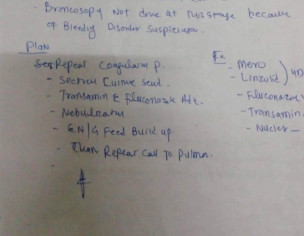 - Broncoscopy Not done at this stage because
of Bleedig Disorder Suspicion.
Plan
Repeat Coagulation P.
- Sputum Culture Send.
- Transamin & Fluconazole Ad.
- Nebulization
- EN/G Feed Build up
- Then Repeat Call to Pulmn.
Rx
- Mero
- Linzolid
- Fluconazole
- Transamin